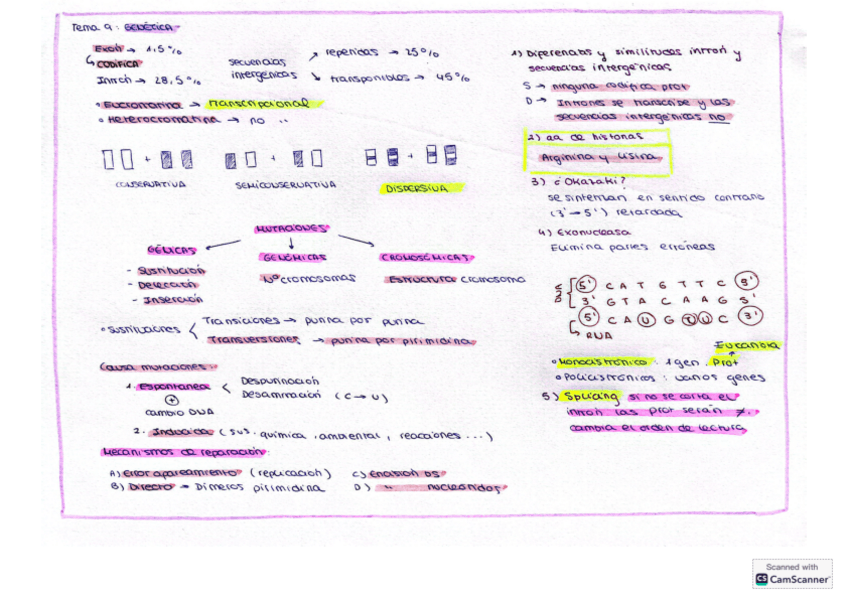 Tema 9: GENÉTICA
Exón → 1,5%
↳ CODIFICA
Intrón → 28,5%
secuencias intergénicas
↗ repetidas → 25%
↘ transponibles → 45%
• Eucromatina → transcripcional
• Heterocromatina → no "
CONSERVATIVA
SEMICONSERVATIVA
DISPERSIVA
MUTACIONES
GÉNICAS
- Sustitución
- Delección
- Inserción
GENÓMICAS
Nº cromosomas
CROMOSÓMICAS
Estructura cromosoma
• Sustituciones
Transiciones → purina por purina
Transversiones → purina por pirimidina
Causa mutaciones:
1. Espontánea
⊕
cambio DNA
Despurinación
Desaminación (C → U)
2. Inducida (sus. química, ambiental, reacciones ...)
Mecanismos de reparación:
A) Error apareamiento (replicación)
B) Directo → Dímeros pirimidina
C) Encisión DS
D) " nucleónidos
1) Diferencias y similitudes intrón y
secuencias intergénicas
S → ninguna codifica prot
D → Intrones se transcribe y las
secuencias intergénicas no
2) aa de histonas
Arginina y Lisina
3) ¿Okazaki?
se sintetizan en sentido contrario
(3' → 5') retardada
4) Exonucleasa
Elimina partes erróneas
DNA
5' C A T G T T C 3'
3' G T A C A A G 5'
5' C A U G U U C 3'
↳ RNA
Eucariota
• Monocistrónico: 1 gen. prot
• Policistrónicos: varios genes
5) Splicing si no se corta el
intrón las prot serán ≠.
cambia el orden de lectura
Scanned with
CS CamScanner